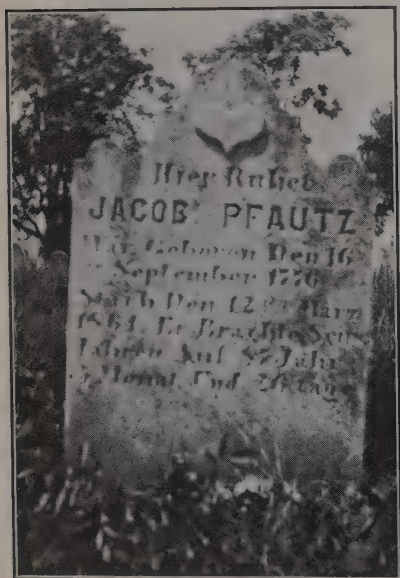 Hier Ruhet
JACOB PFAUTZ
War Geboren Den 16
September 1776
Starb Den 12 März
1864. Er Brachte Sein
Jahren Auf 87 Jahr
5 Monat Und 26 tag